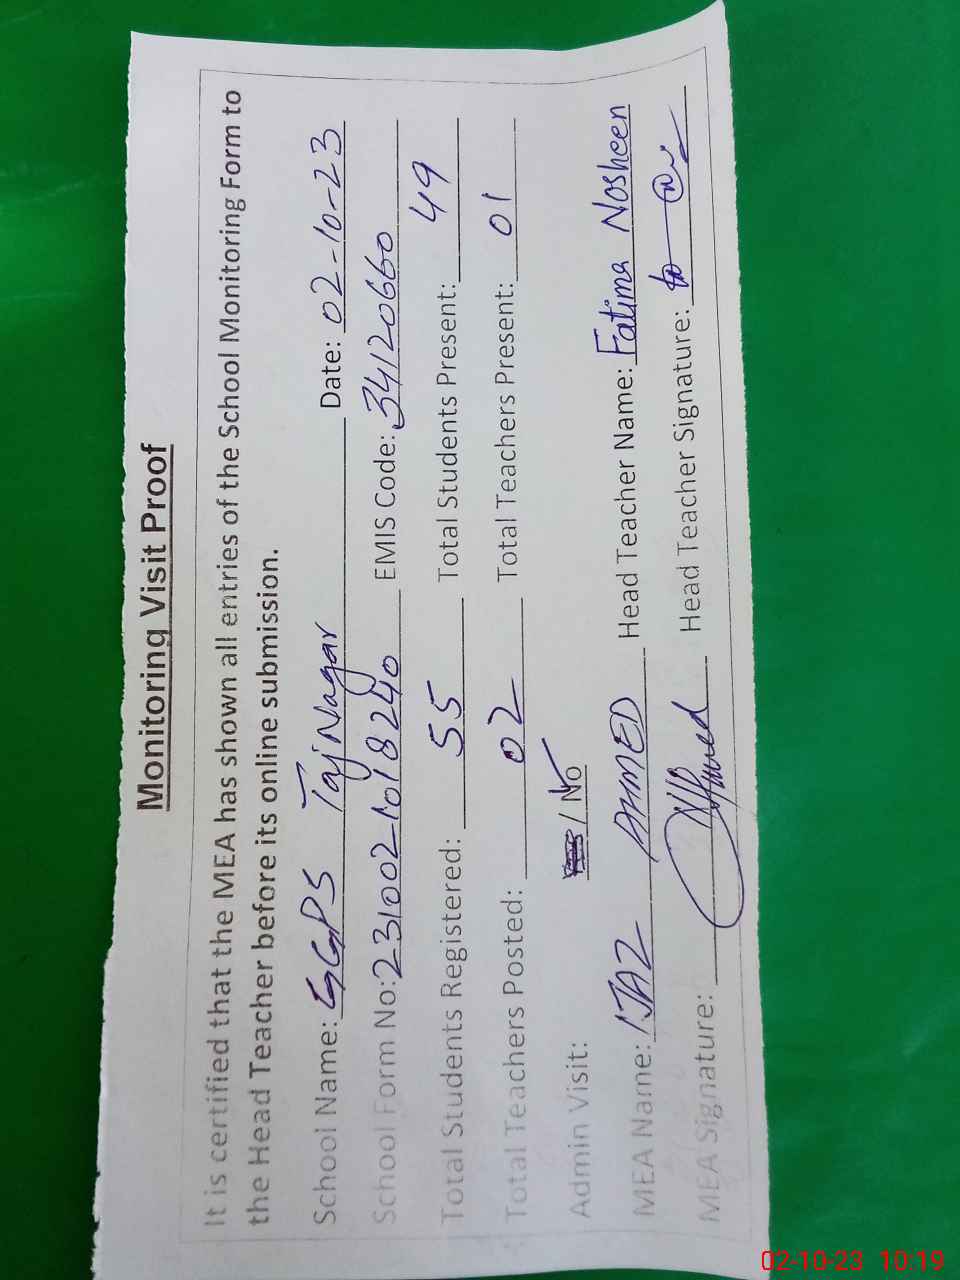 Monitoring Visit Proof
It is certified that the MEA has shown all entries of the School Monitoring Form to
the Head Teacher before its online submission.
School Name: GGPS Taj Nagar Date: 02-10-23
School Form No: 2310021018240 EMIS Code: 34120660
Total Students Registered: 55 Total Students Present: 49
Total Teachers Posted: 02 Total Teachers Present: 01
Admin Visit: Yes / No
MEA Name: IJAZ AHMED Head Teacher Name: Fatima Nosheen
MEA Signature: Head Teacher Signature:
02-10-23 10:19